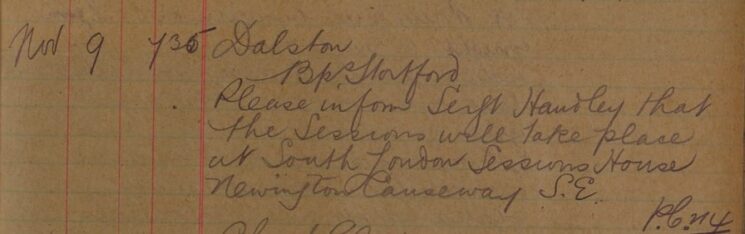 Nov 9 735 Dalston
Bp Stortford
Please inform Sergt Handley that
the Sessions will take place
at South London Sessions House
Newington Causeway S.E.
P.C. 114